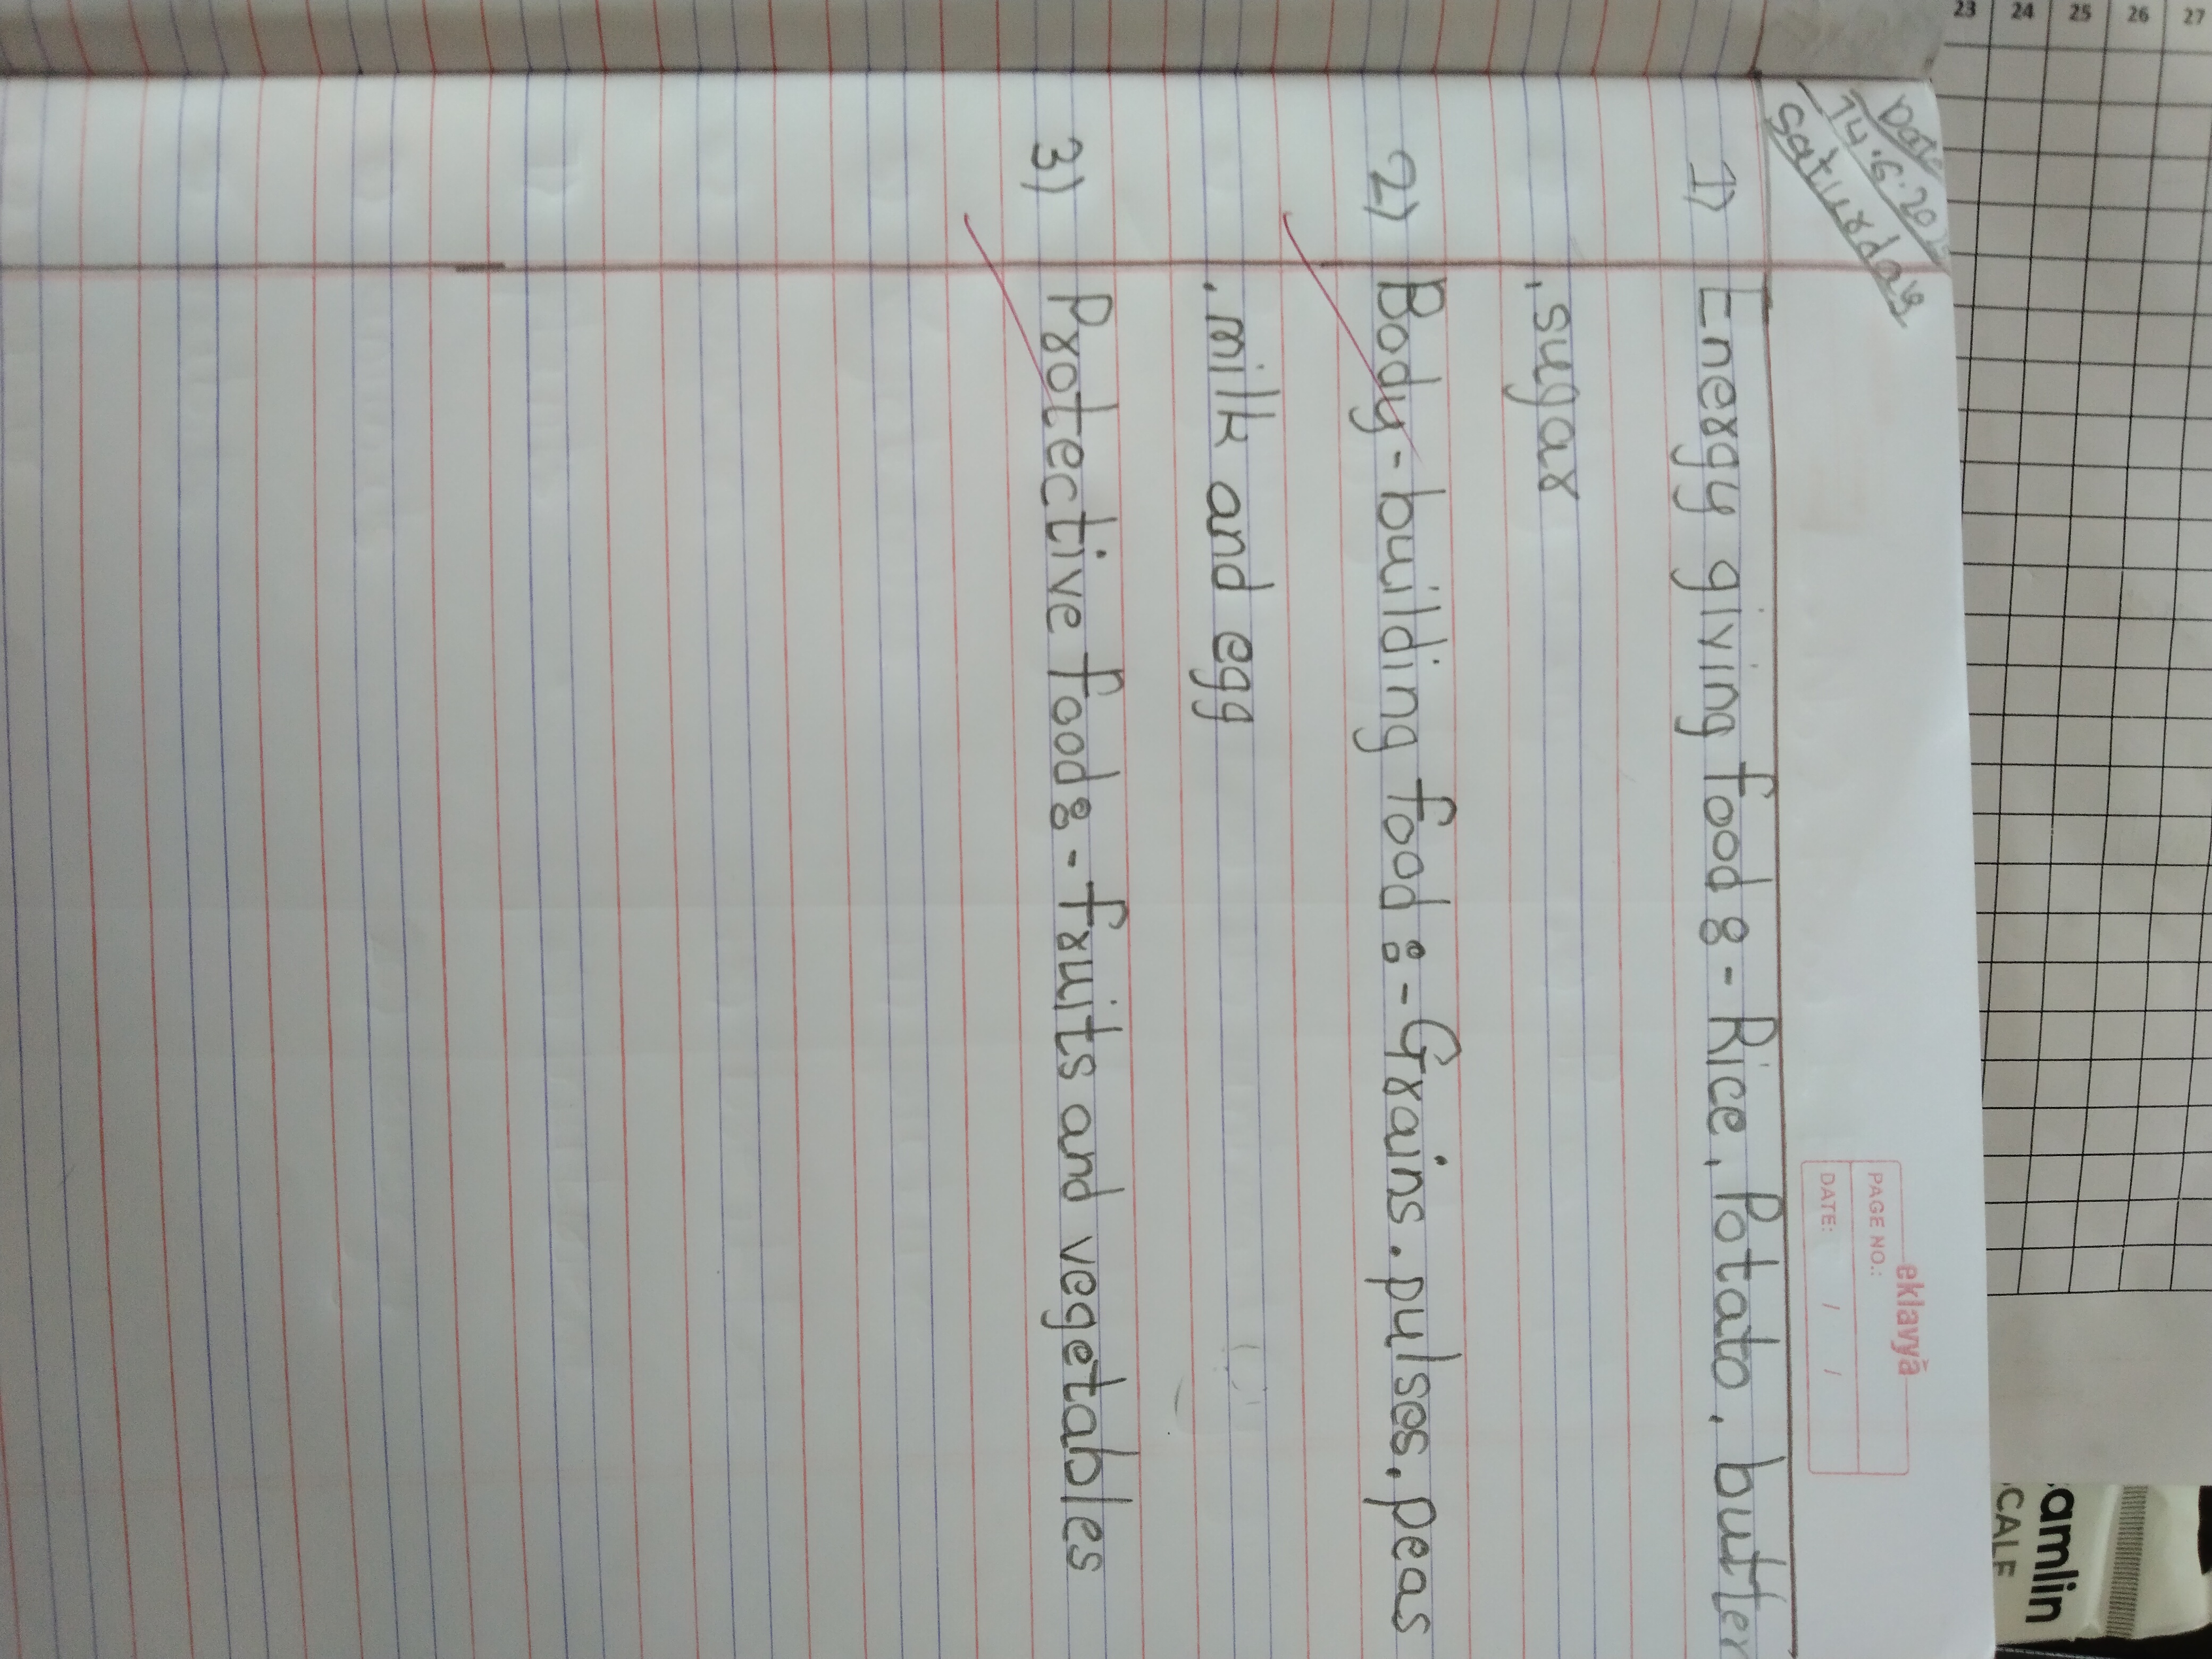 Date
14.6.20
Saturday
eklavya
PAGE NO.:
DATE: / /
1) Energy giving food :- Rice, Potato, butter
, sugar
2) Body-building food :- Grains, pulses, peas
, milk and egg
3) Protective food :- fruits and vegetables
23 24 25 26 27
amlin
SCALE